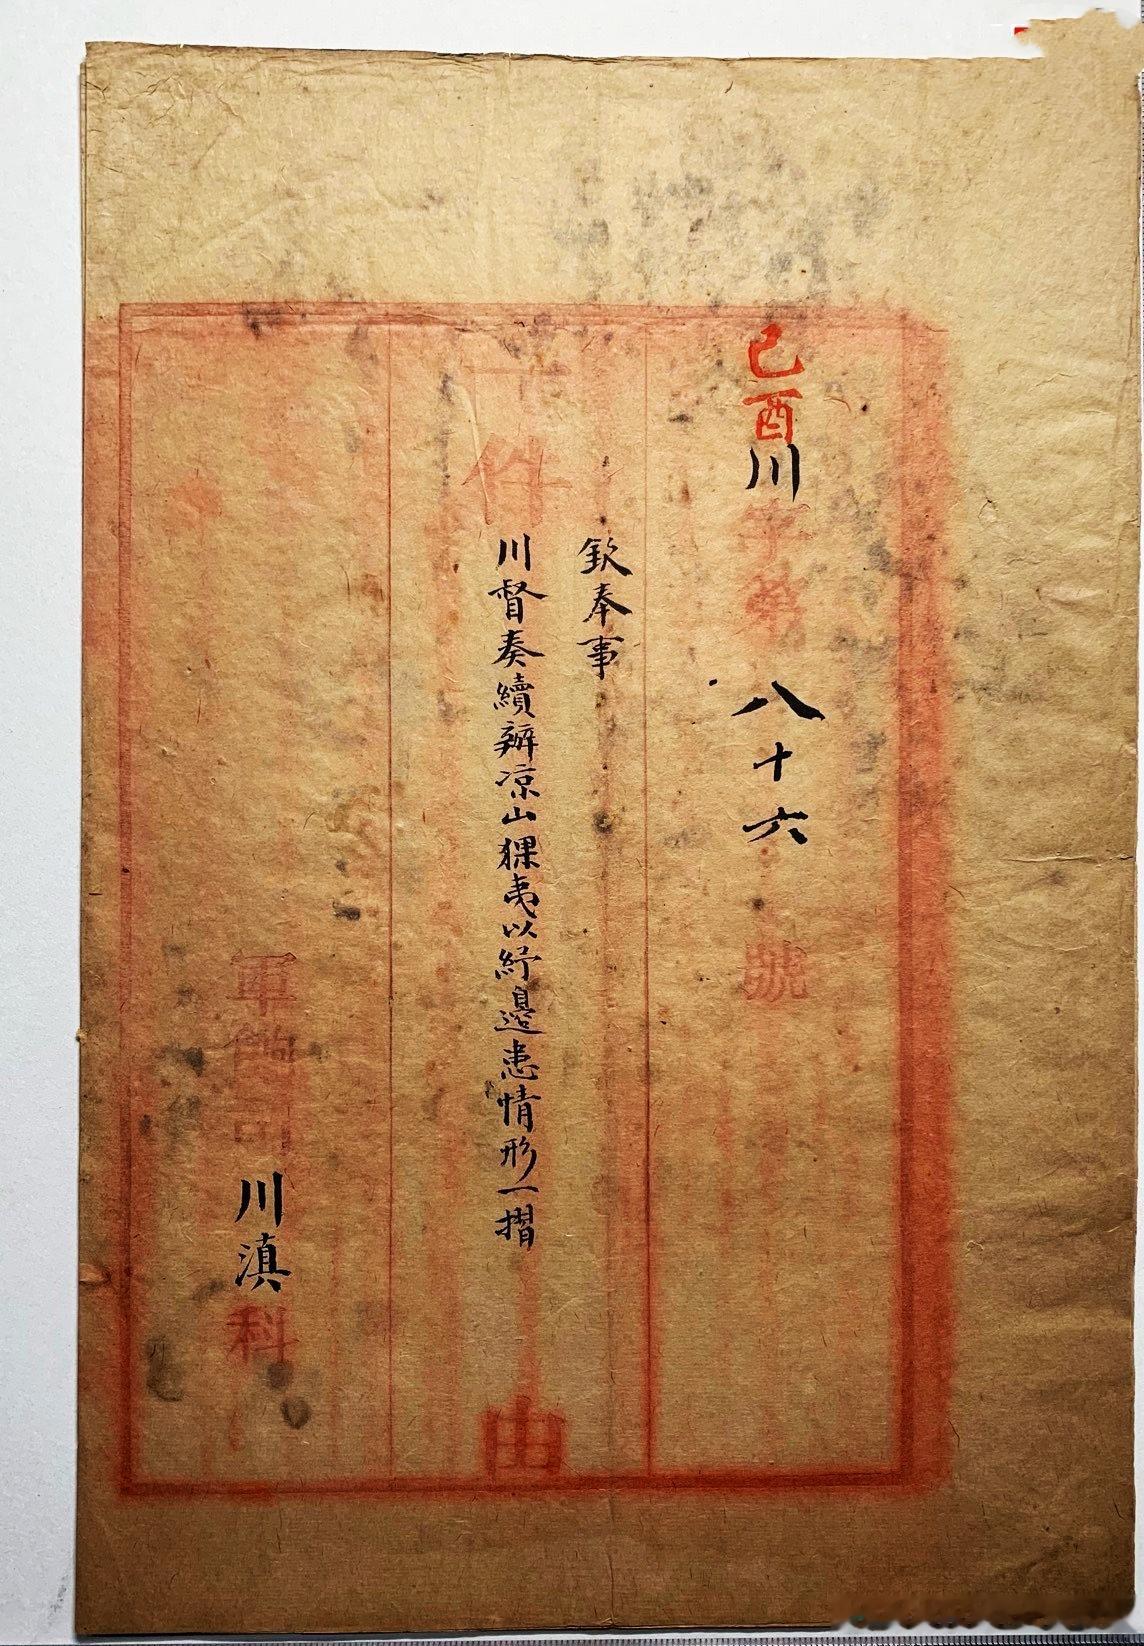 己酉川字第八十六號
欽奉事
一件川督奏續辦凉山猓夷以紓邊患情形一摺由
軍制司川滇科